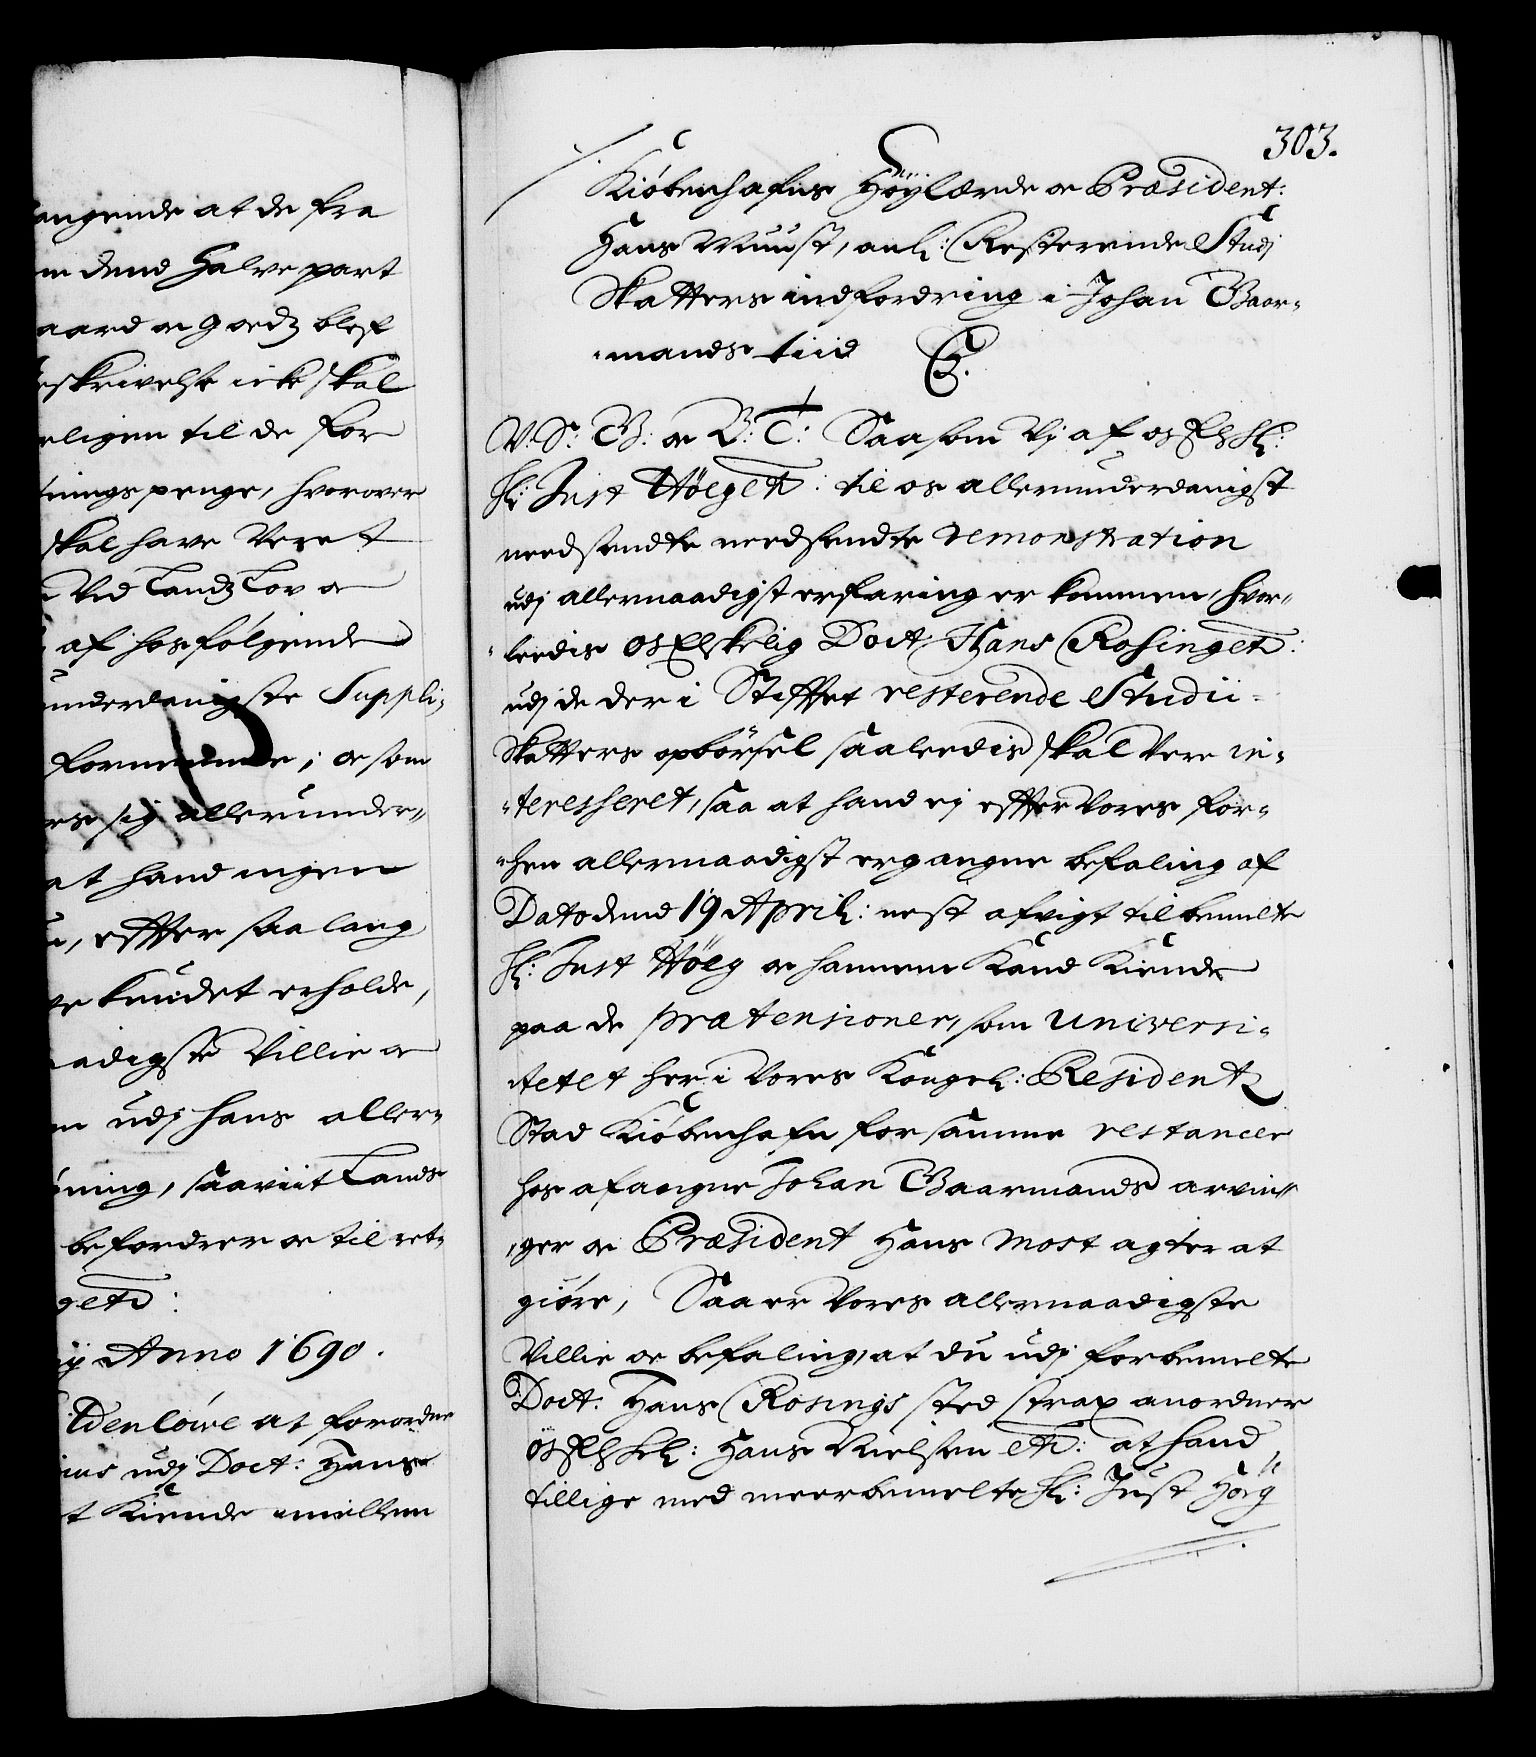 angende at de fra
m dend Halve part
aard oc godz blef
eskrivelse icke skal
rligen til de for
tnings penge, hvorover
skal have Veret
Ved Landz Lov oc
af hosfølgende
underdanigste Suppli-
fornemme; oc som
es sig allerunder-
at hand ingen
, effter saa lang
e kundet erholde,
aadigste Villie oc
m udj hans aller-
ning, saaviit Lands
befordrer oc til ret-
getc:
ij Anno 1690.
Gdenlöwe at forordne
ius udj Doct: Hans
t Kiende imellem
303.
Kiöbenhafns Höylærde oc Præsident:
Hans Munst, anl: Resterende Studj
Skatters indfordring i Johan Baar-
-mands tiid C.
V. S: G: oc B: T: Saasom Vj af os Elskl:
Hl: Just Höeg etc: til os allerunderdanigst
needsendte needsendte remonstration
udj allernaadigst erfaring er kommen, hvor-
-leedis os Elskelig Doct Hans Rosing etc:
udj de der i Stifftet resterende Studii-
Skatters opbörsel saaleedis skal Vere in-
-teresseret, saa at hand ej effter Vores for-
-hen allernaadigst ergangne befaling af
Dato dend 19 April: nest afvigt til bemelte
Hl: Just Höeg oc hannem Kand Kiende
paa de prætensioner, som Universi-
tetet her i Vores Kongel: Residentz
Stad Kiöbenhafn for samme restancer
hos afgangne Johan Baarmands arvin-
-ger oc Præsident Hans Most agter at
giöre, Saa er Vores allernaadigste
Villie oc befaling, at du udj forbemelte
Doct: Hans Rosings sted strax anordner
os Elskl: Hans Nielsen etc: at hand
tillige med meerbemelte Hl: Just Höeg